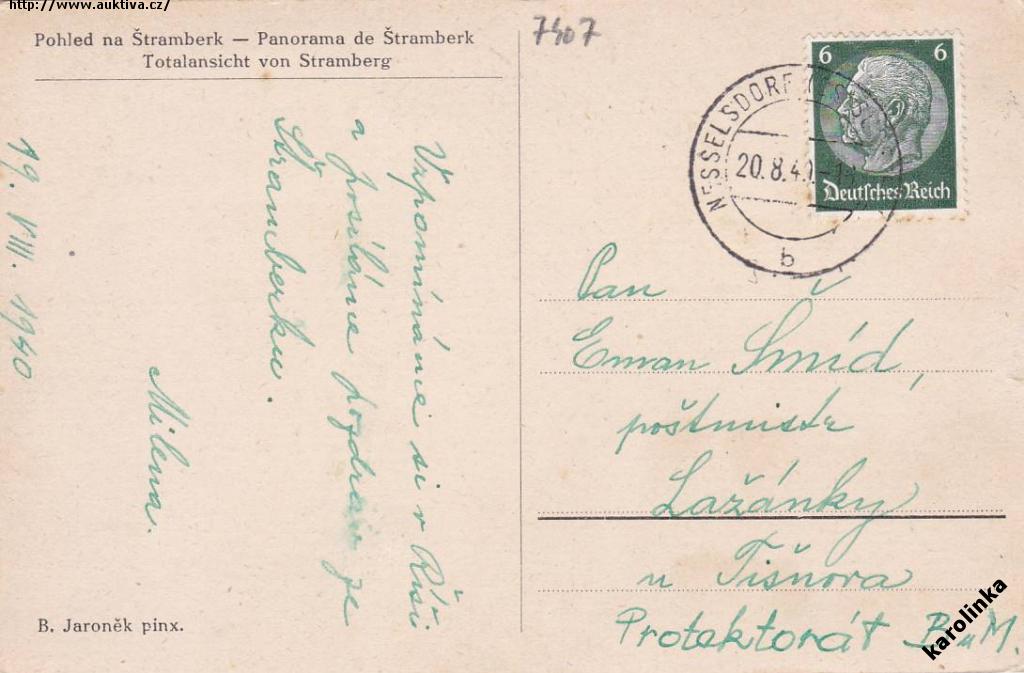 http://www.auktiva.cz/
Pohled na Štramberk — Panorama de Štramberk
Totalansicht von Stramberg
7407
6 6
Deutsches Reich
NESSELSDORF
20.8.40
b
19. VIII. 1940
Vzpomínáme si v Říši
a posíláme pozdrav ze
Štramberku.
Milena.
Pan
Eman Šmíd,
poštmistr
Lažánky
u Tišnova
Protektorát B u M.
B. Jaroněk pinx.
karolinka